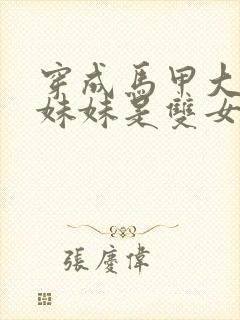 穿成馬甲大
妹妹是雙女
張慶偉